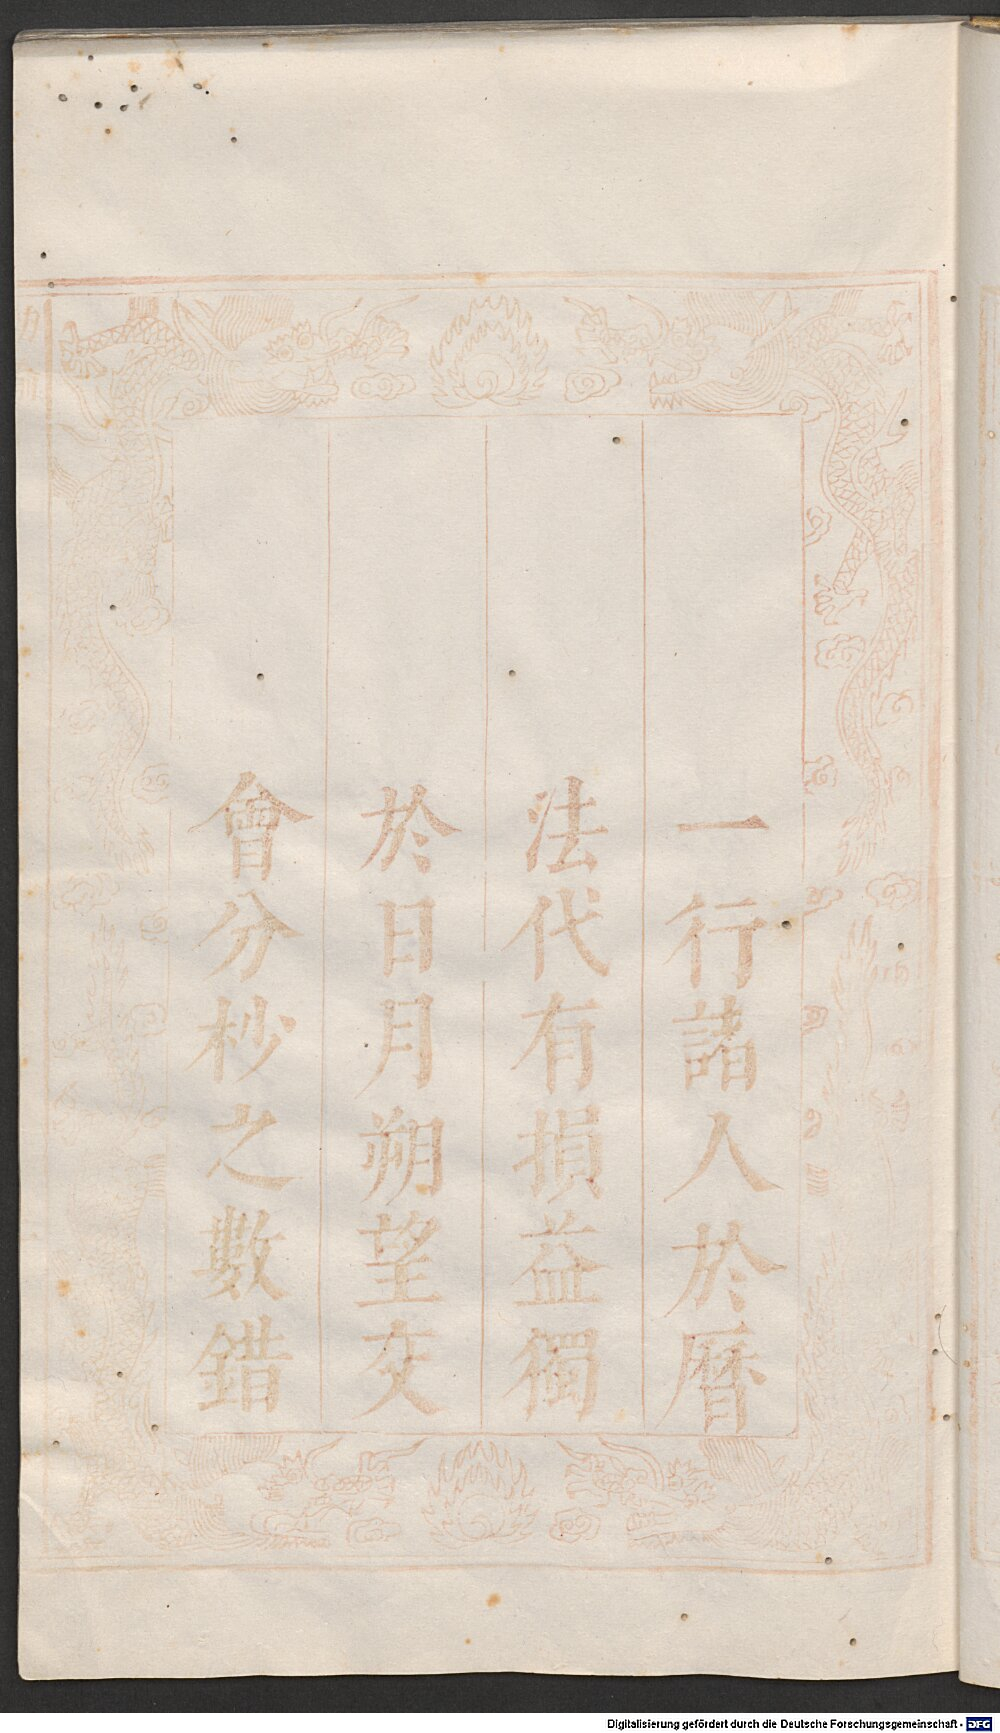 一行諸人於曆
法代有損益獨
於日月朔望交
會分杪之數錯
Digitalisierung gefördert durch die Deutsche Forschungsgemeinschaft - DFG